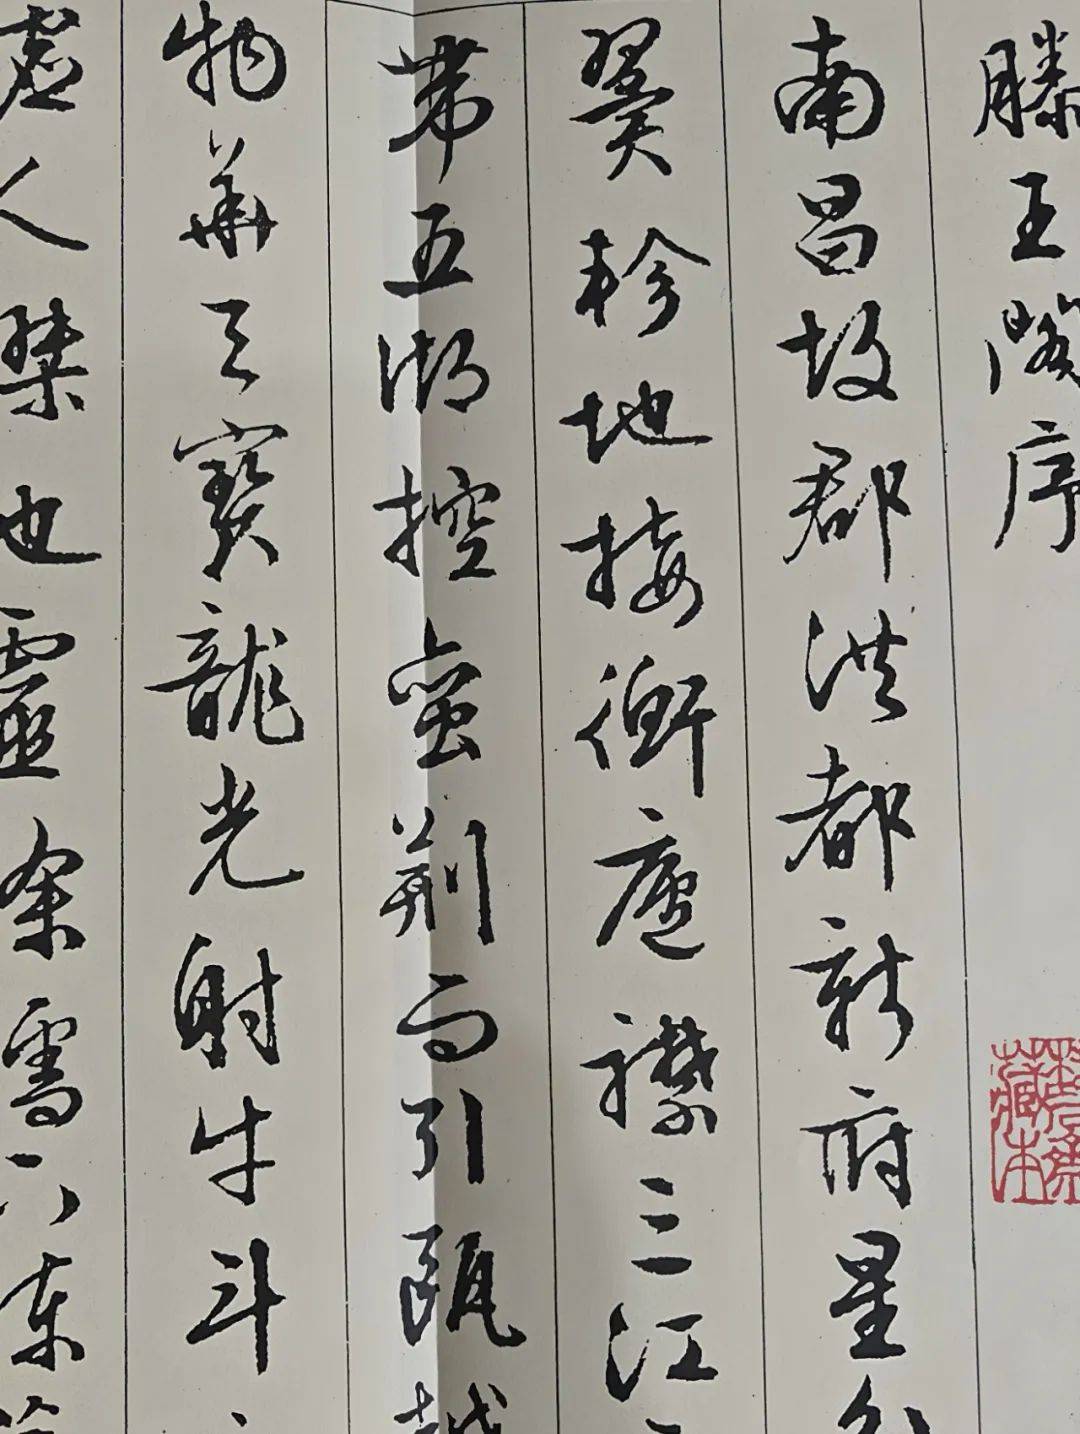 滕王閣序
南昌故郡洪都新府星分
翼軫地接衡廬襟三江
帶五湖控蠻荊而引甌越
物華天寶龍光射牛斗
墟人傑地靈徐孺下陳
藏本